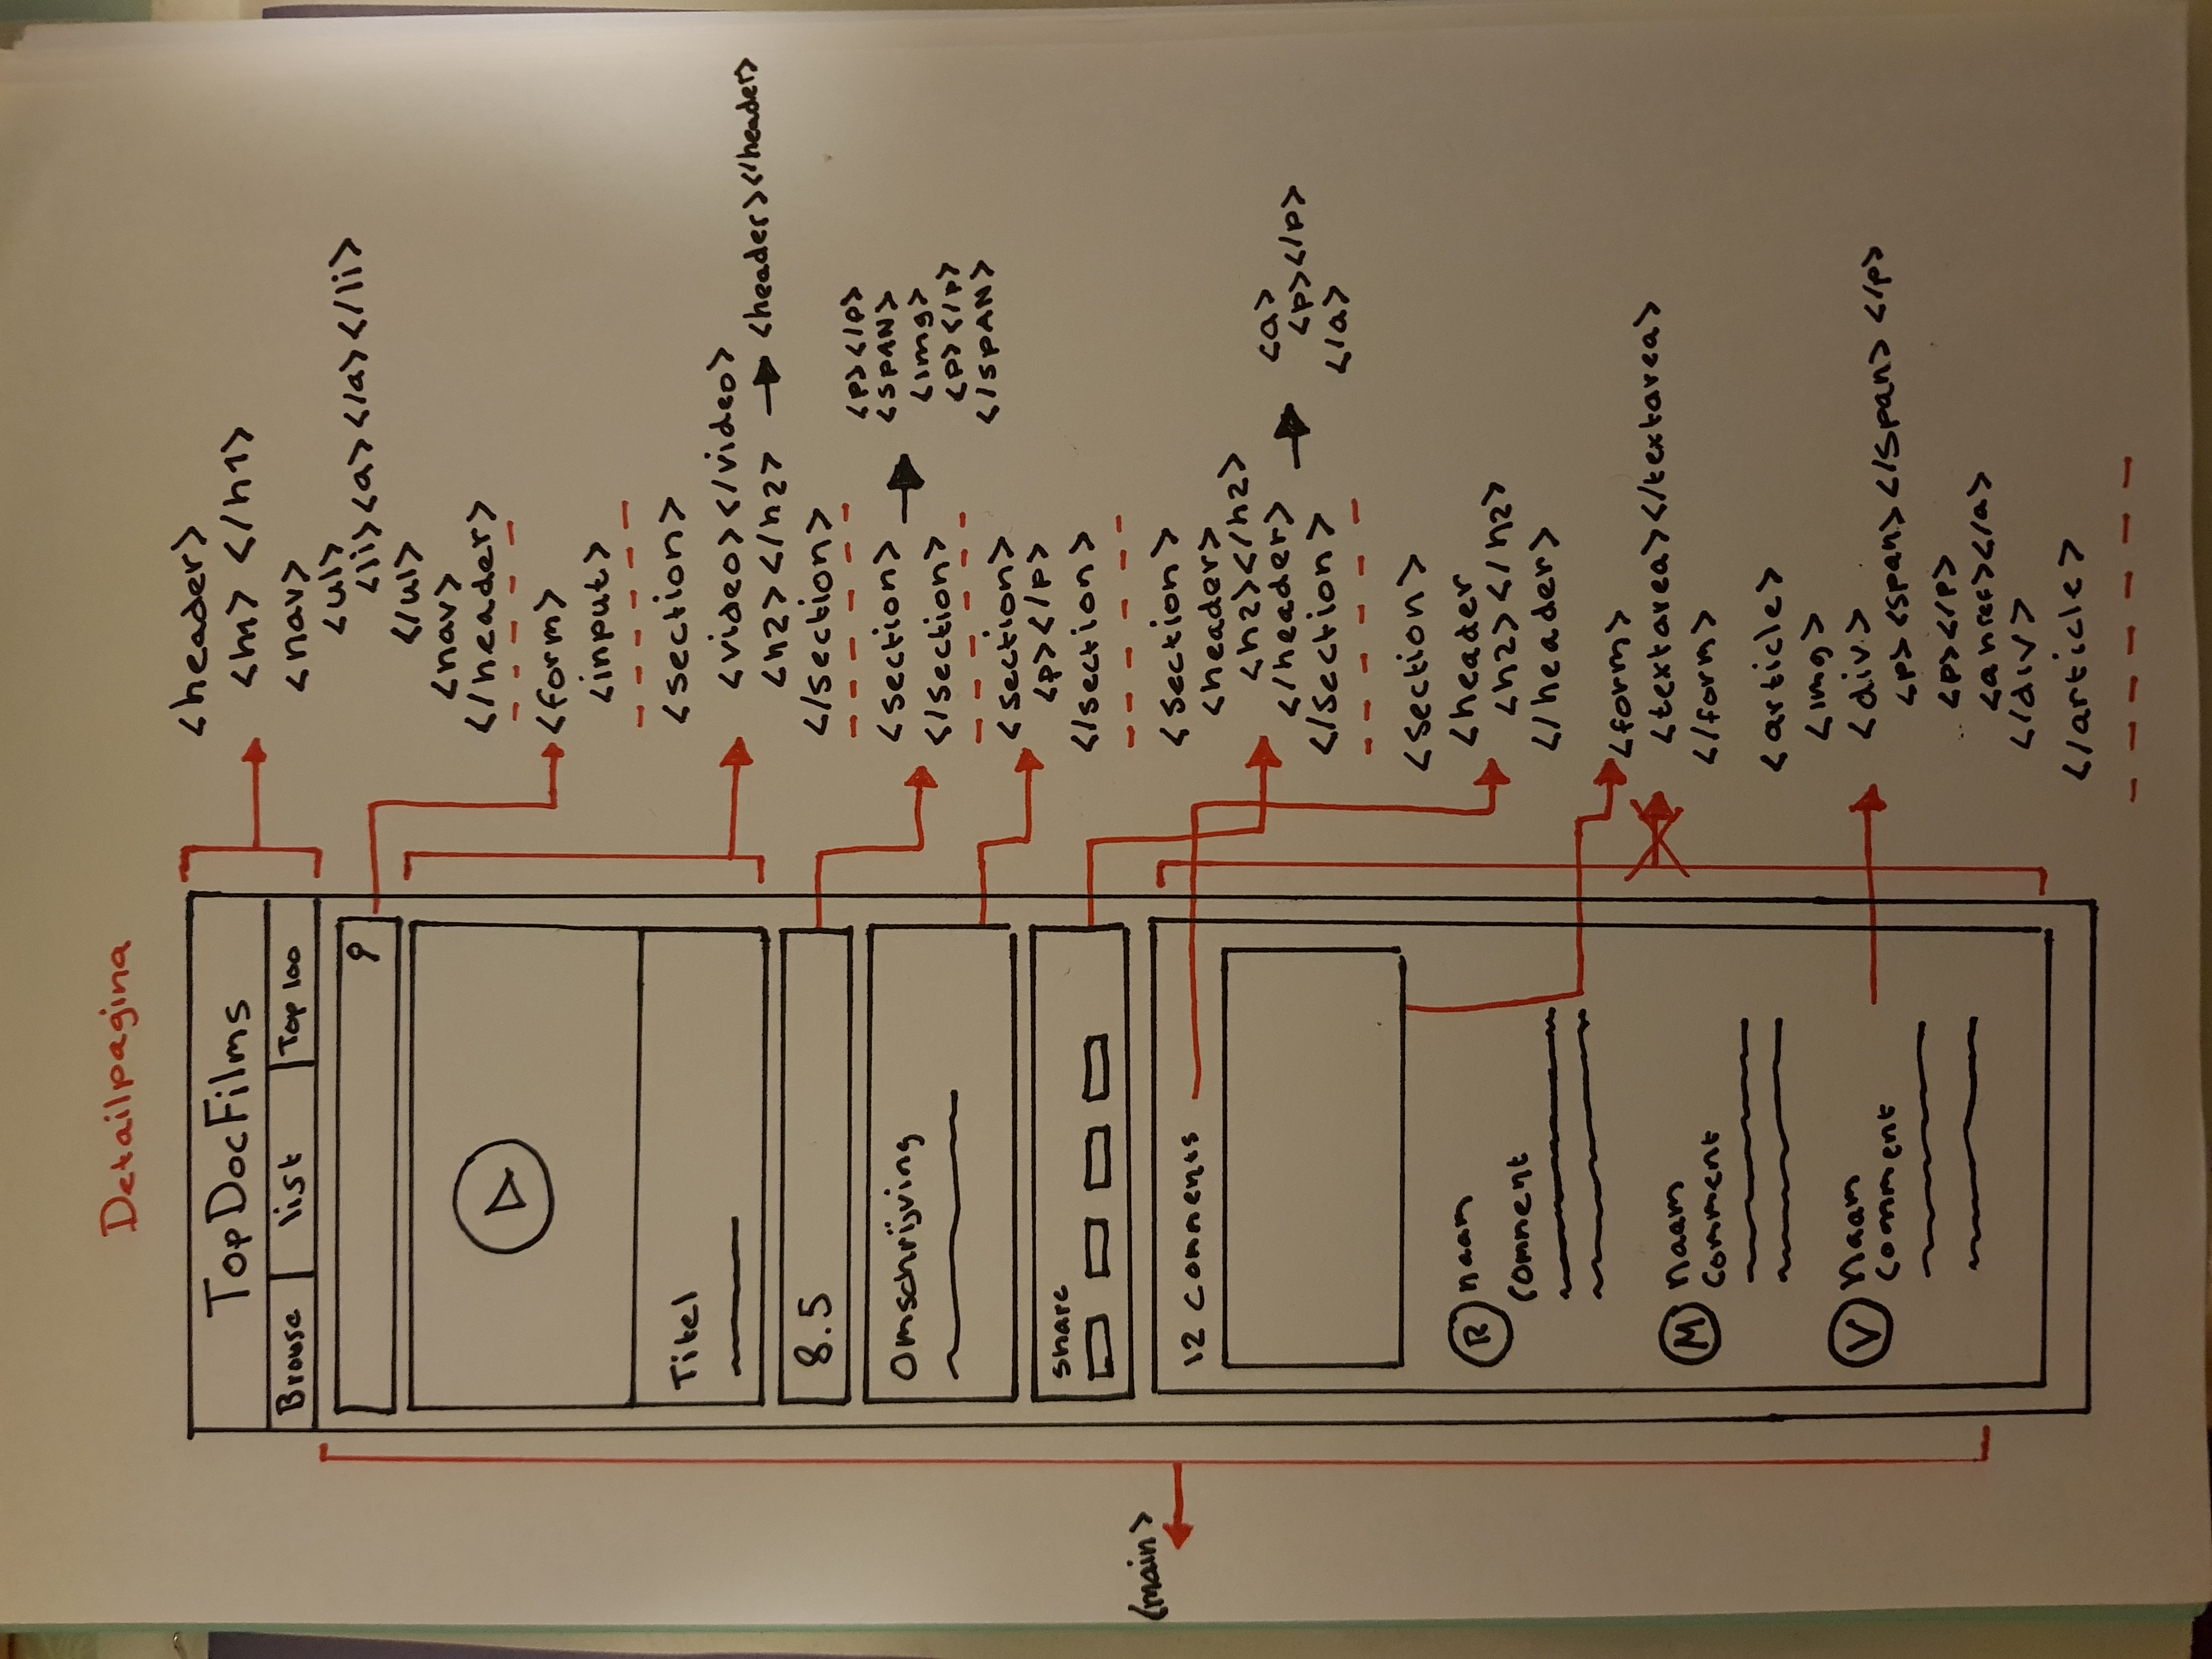 Detailpagina
TopDocFilms
Browse list Top 100
Titel
8.5
Omschrijving
share
12 comments
R naam
comment
M naam
comment
V naam
comment
<main>
<header>
<h1> </h1>
<nav>
<ul>
<li><a></a></li>
</ul>
<nav>
</header>
<form>
<input>
<section>
<video></video>
<h2></h2> → <header></header>
</section>
<section>
</section>
<p></p>
<SPAN>
<img>
<p></p>
</SPAN>
<section>
<p></p>
</section>
<section>
<header>
<h2></h2>
</header>
</section>
<a>
<p></p>
</a>
<section>
<header
<h2></h2>
</header>
<form>
<textarea></textarea>
</form>
<article>
<img>
<div>
<p><span></span></p>
<p></p>
<a href></a>
</div>
</article>